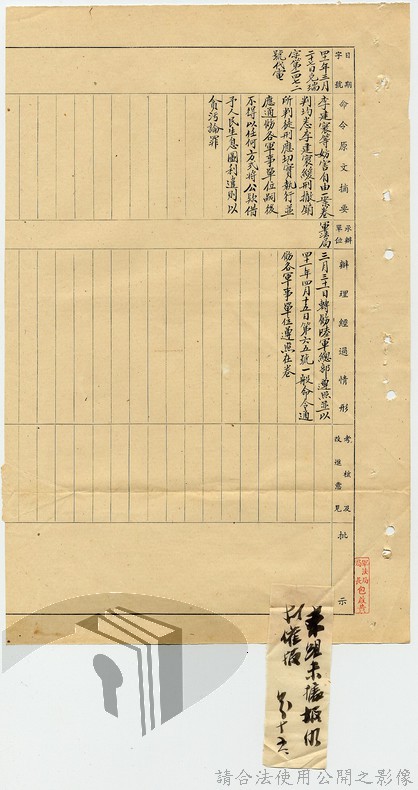 日期
字號
命令原文摘要
承辦單位
辦理經過情形
考核及改進意見
批示
四十一年三月
二十七日克瑞
字第四七二
號代電
李建寰等妨害自由一案奉
判均悉李建寰緩刑撤銷
所判徒刑應切實執行並
應通飭各軍事單位嗣後
不得以任何方式將公款借
予人民生息圖利違則以
貪污論罪
軍法局
三月三十一日轉飭陸軍總部遵照並以
四十一年四月十五日第六五號一般命令通
飭各軍事單位遵照在卷
軍法局
局長包啟黃
請合法使用公開之影像